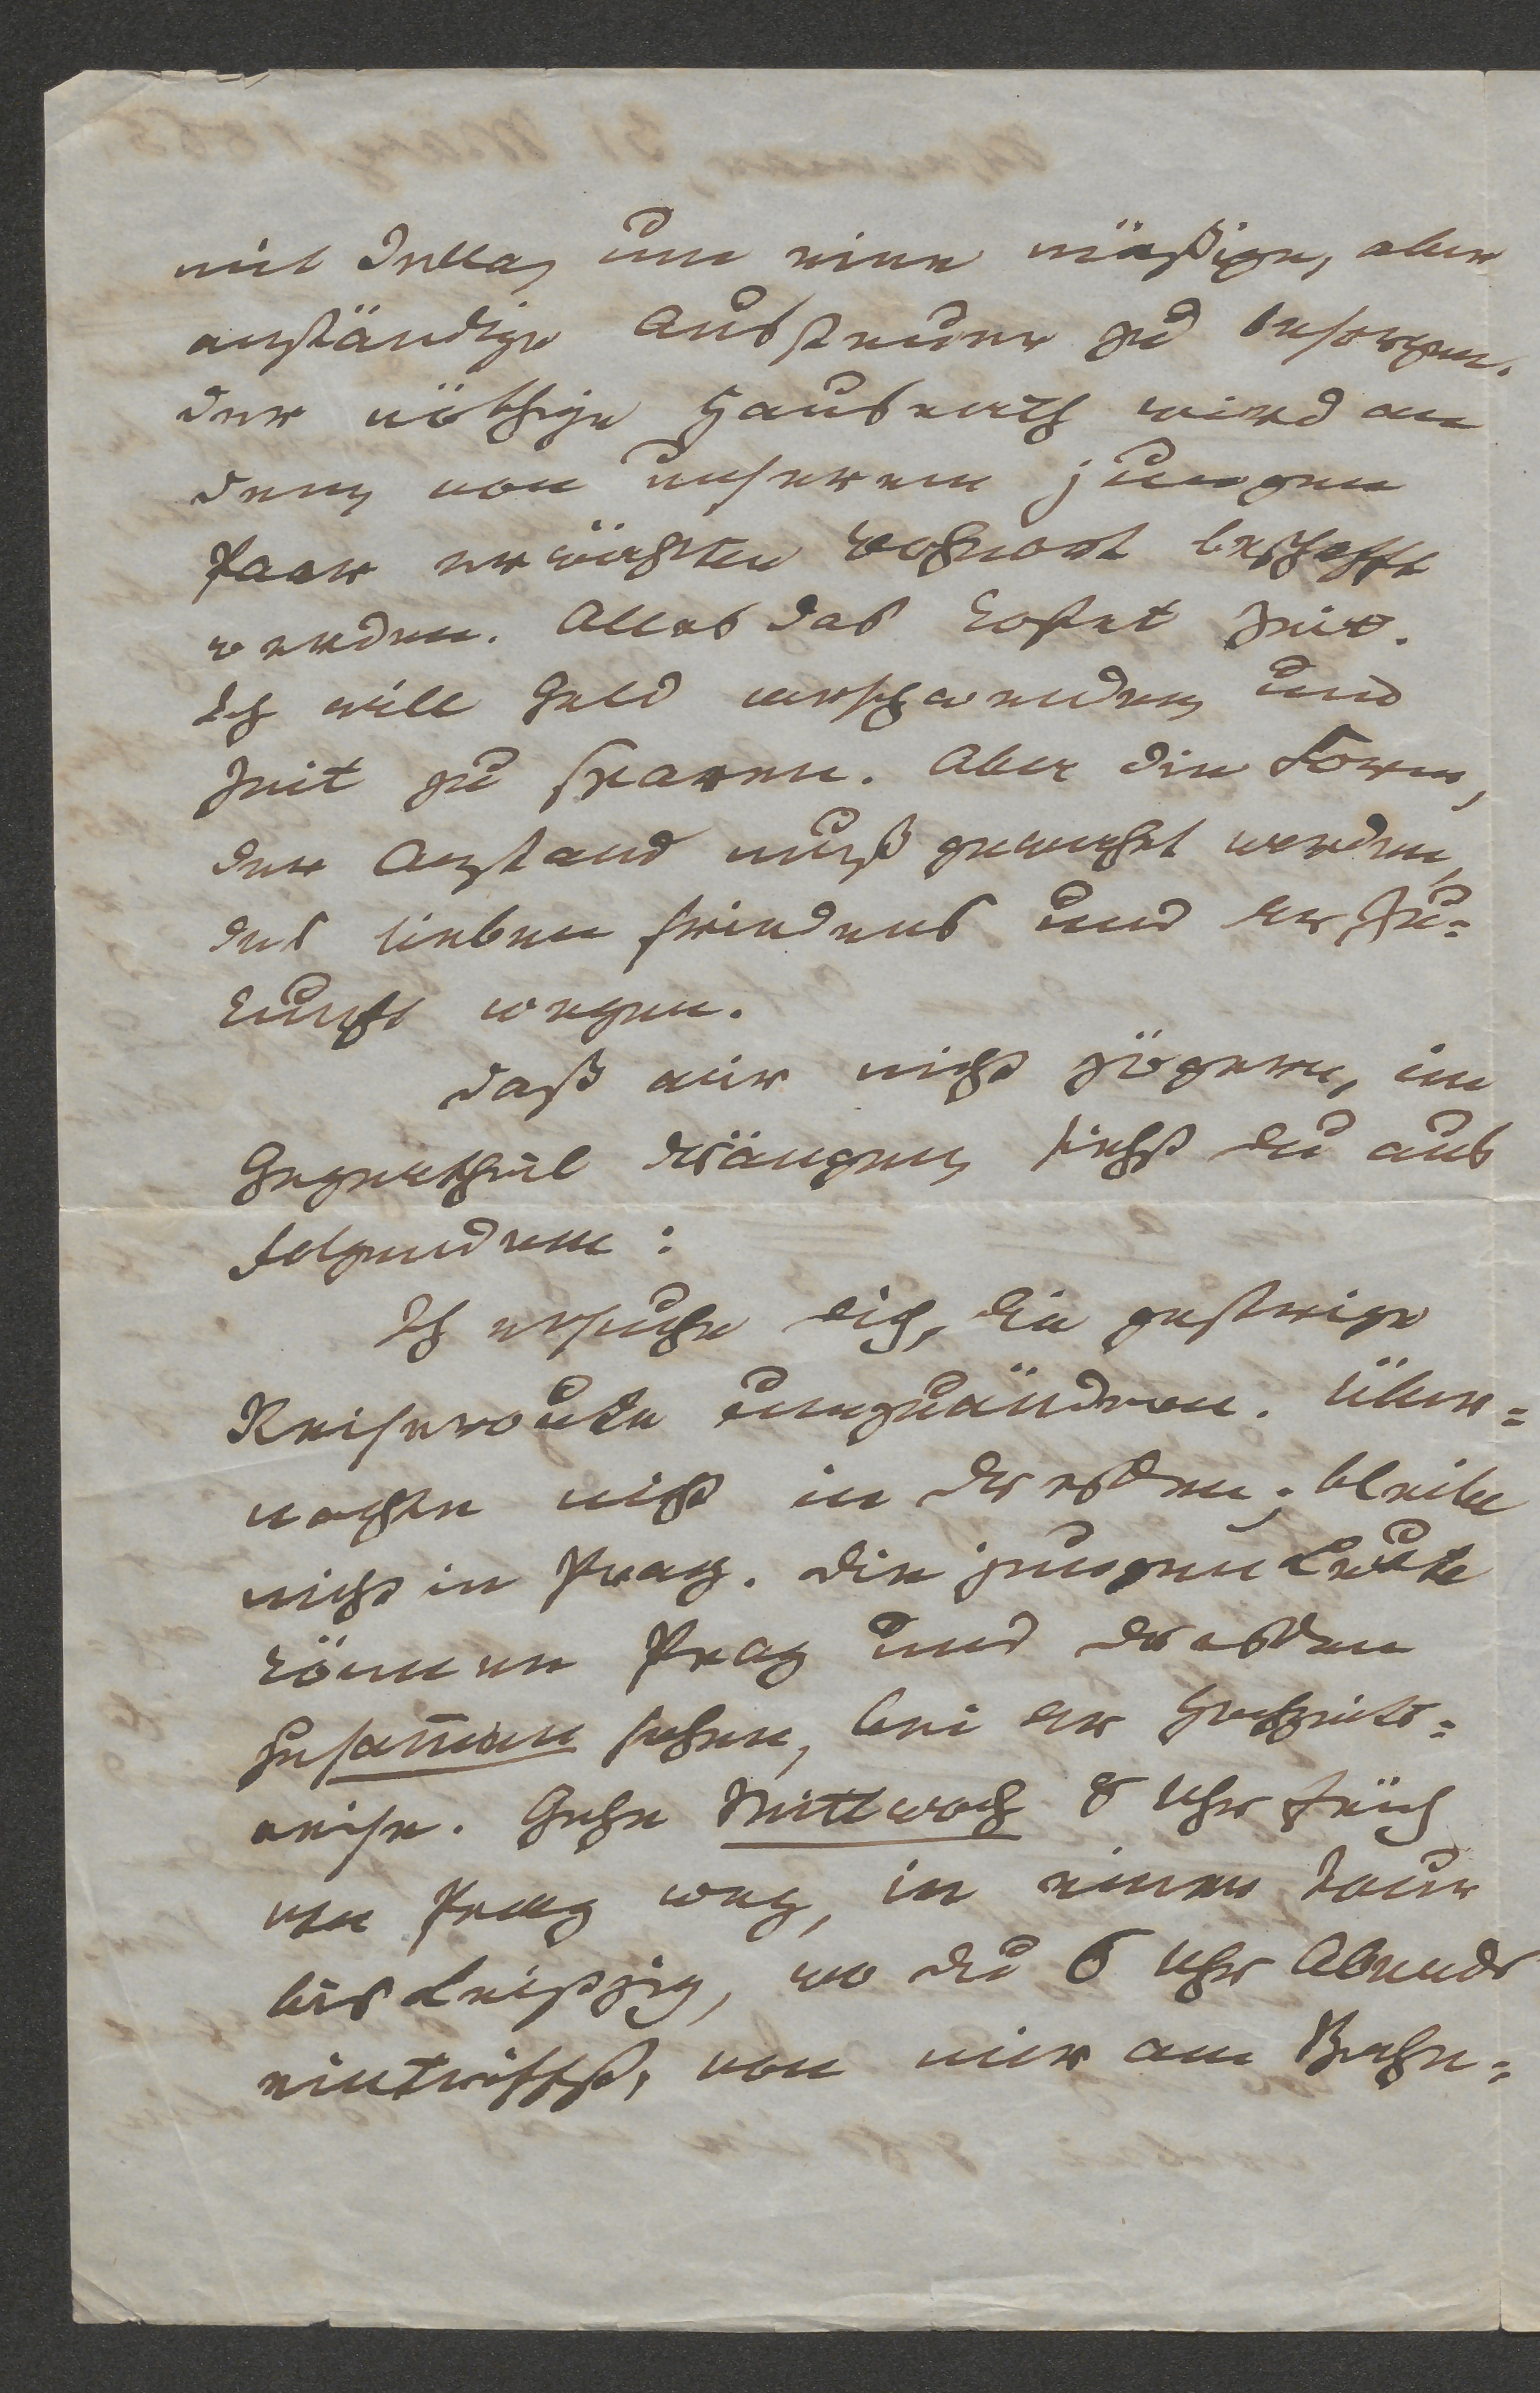 mit Jella, um eine mäßige, aber
anständige Aussteuer zu besorgen.
Der nöthige Hausrath wird an
dem, von unserem jungen
Paar erwählten Wohnort beschafft
werden. Alles das kostet Zeit.
Ich will Geld verschwenden und
Zeit zu sparen. Aber die Form,
der Anstand muß gewahrt werden,
des lieben Friedens und der Zu=
kunft wegen.
Daß wir nicht zögern, im
Gegentheil drängen, siehst Du aus
Folgendem:
Ich ersuche Dich, die gestrige
Reiseroute umzuändern. Über=
nachte nicht in Dresden; bleibe
nicht in Prag. Die jungen Leute
können Prag und Dresden
zusam̅en sehen, bei der Hochzeits=
reise. Gehe Mittwoch 8 Uhr Früh
von Prag weg, in einer Tour
bis Leipzig, wo Du 6 Uhr Abends
eintriffst, von mir am Bahn=